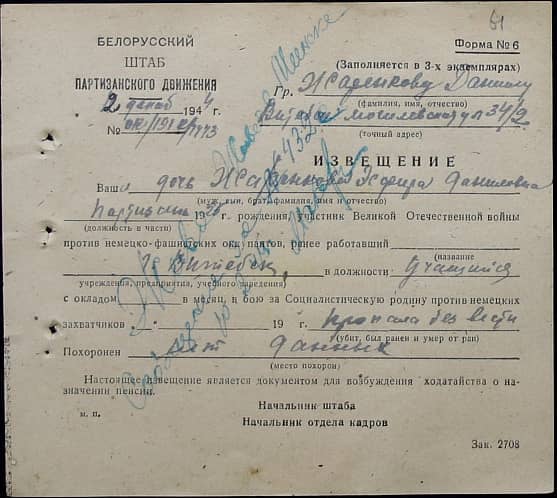 51
БЕЛОРУССКИЙ
ШТАБ
ПАРТИЗАНСКОГО ДВИЖЕНИЯ
2 декаб 1944
№
Форма № 6
(Заполняется в 3-х экземплярах)
Гр. Жаденкову Данилу
(фамилия, имя, отчество)
Витебск Могилевская ул 34/2
(точный адрес)
ИЗВЕЩЕНИЕ
Ваша дочь Жаденкова Даниловна
(муж, сын, брат, фамилия, имя и отчество)
партизан 19 г. рождения участник Великой Отечественной войны
(должность в части)
против немецко-фашистских оккупантов, ранее работавший
(название
г. Витебск, в должности учащийся
учреждения, предприятия, учебного заведения)
с окладом в месяц, в бою за Социалистическую родину против немецких
захватчиков " " 19 г. пропала без вести
(убит, был ранен и умер от ран)
Похоронен нет данных
(место похорон)
Настоящее извещение является документом для возбуждения ходатайства о на-
значении пенсии.
Начальник штаба
м. п.
Начальник отдела кадров
Зак. 2708